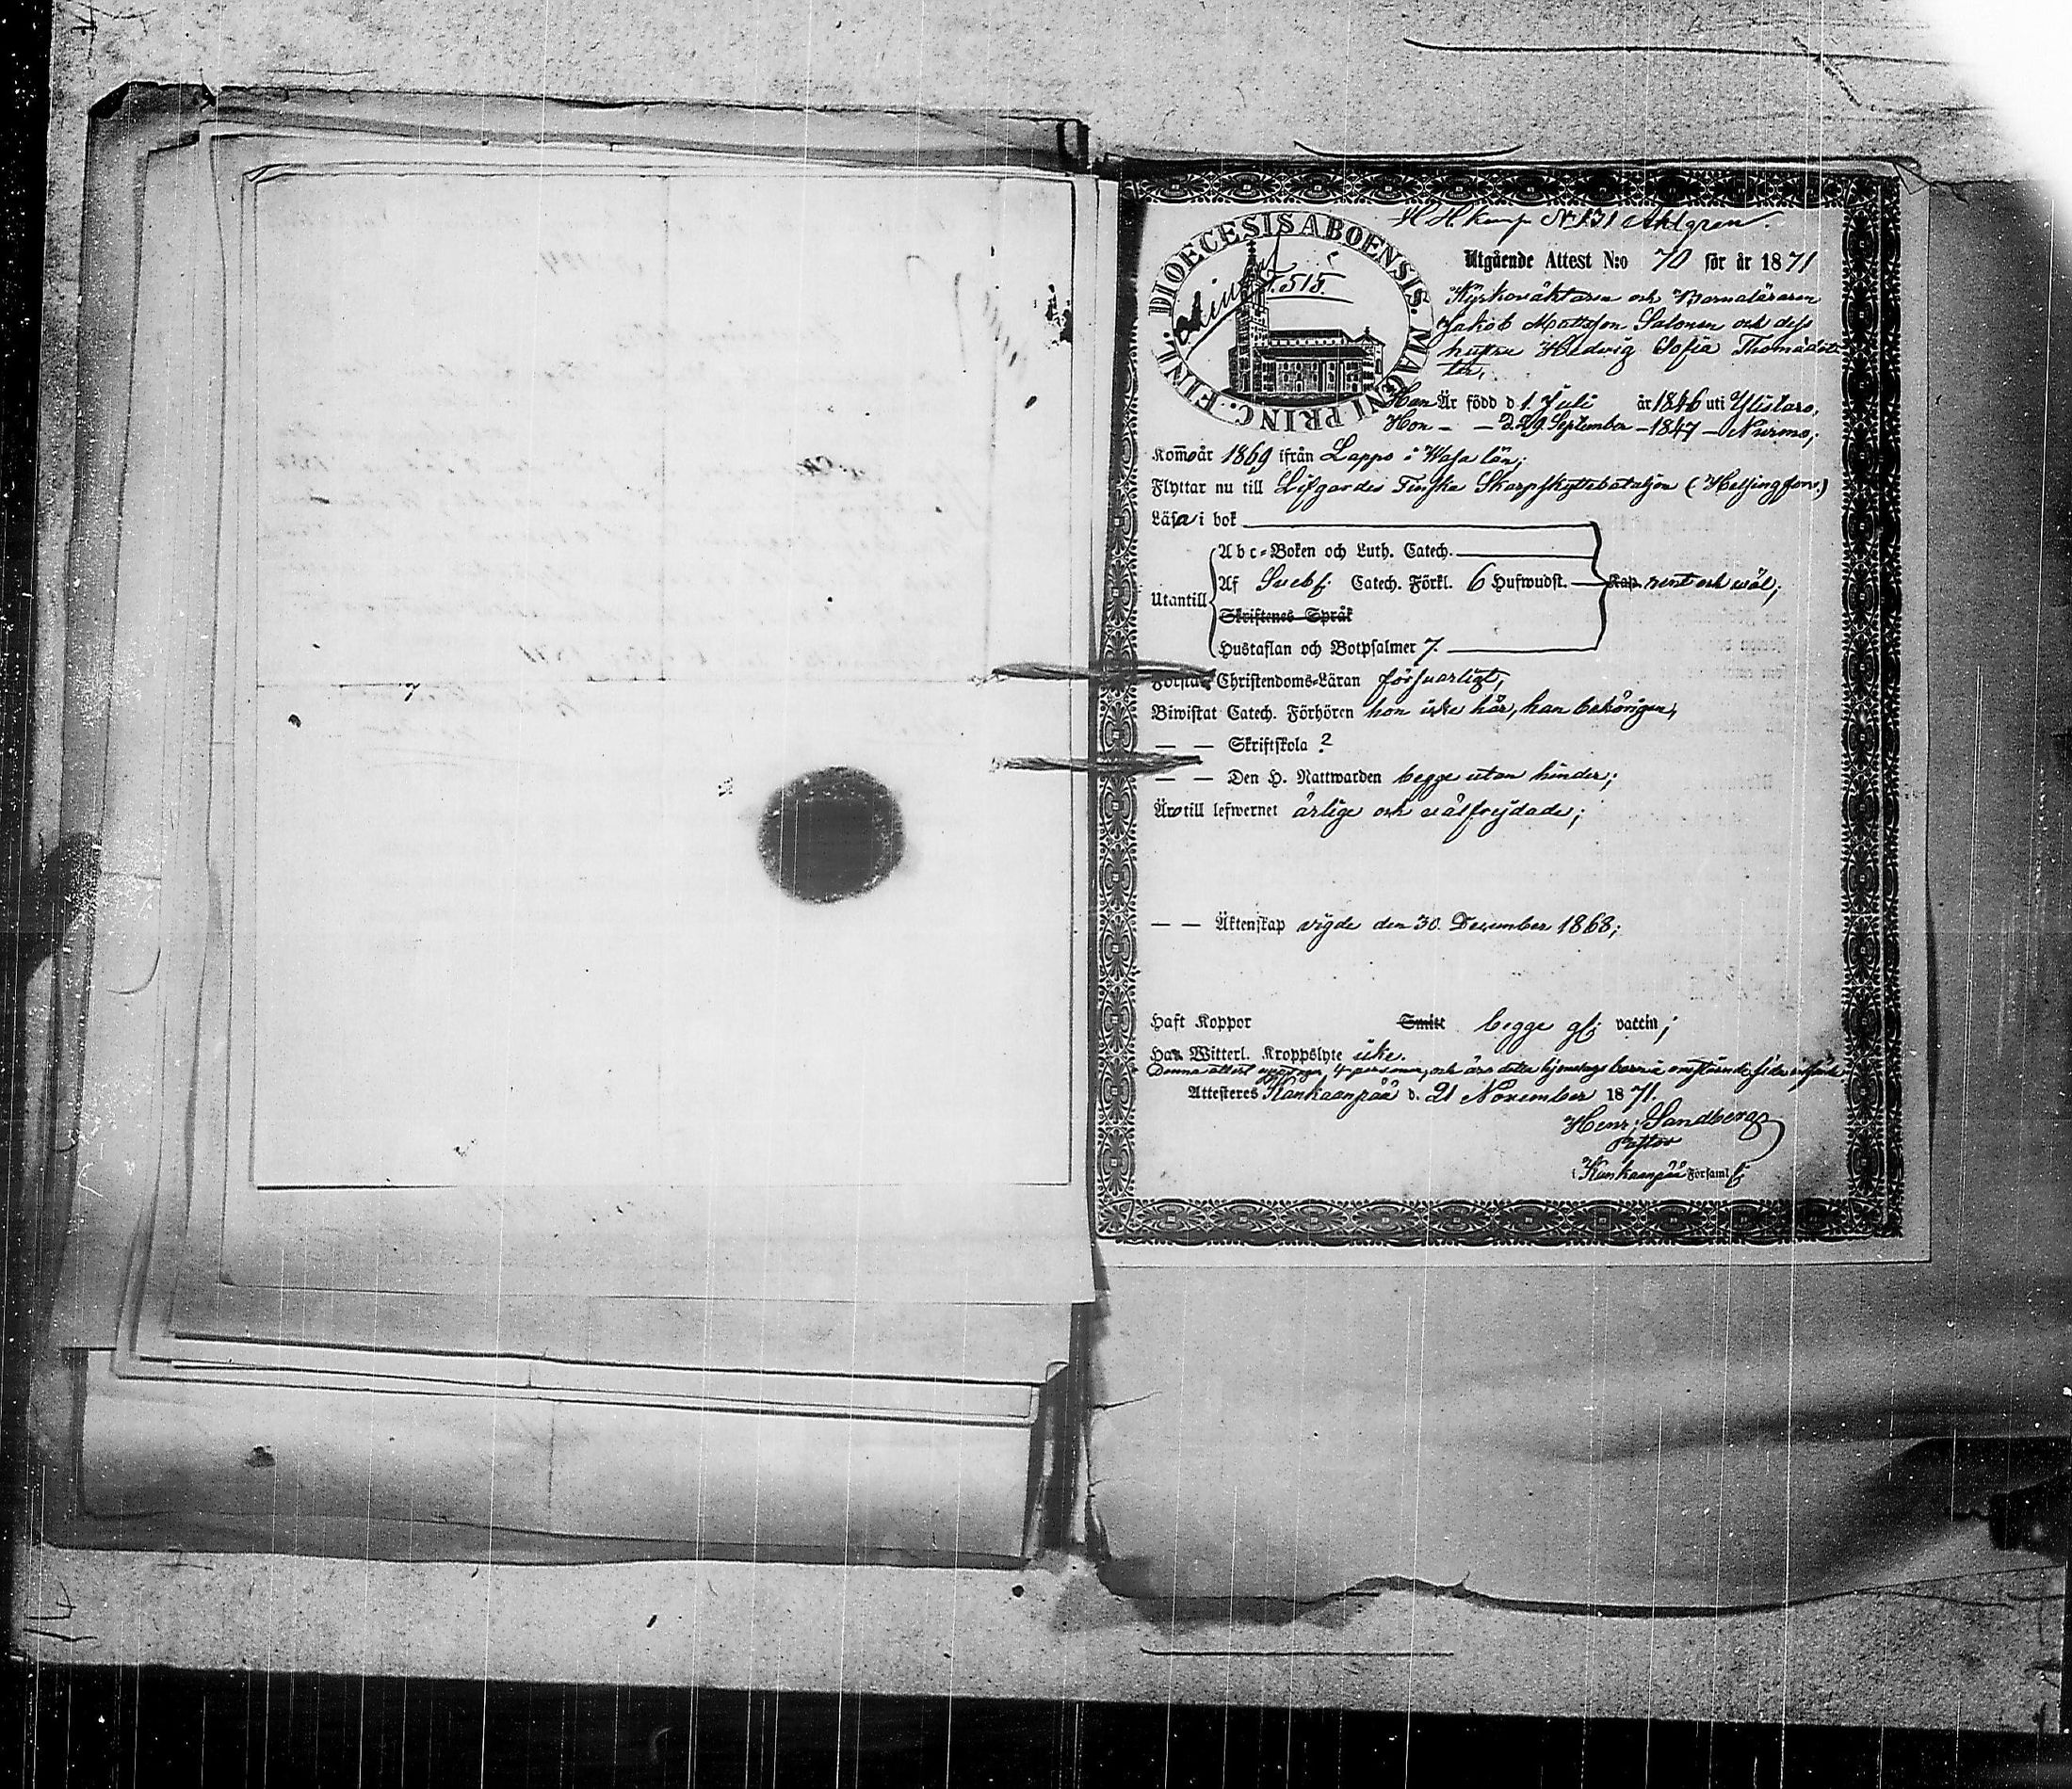 H. H. komp. No 131 Ahlgren.
DIOECESIS ABOENSIS. MAGNI PRINC. FINL.
S. 515.
Utgående Attest N:o 70 för år 1871
Kyrkoväktaren och Barnaläraren
Jakob Mattsson Salonen och dess
hustru Hedvig Sofia Thomasdot-
ter,
Han Är född d 1 Juli år 1846 uti Ylistaro,
Hon — — d 29 September — 1847 — Nurmo;
Kom år 1869 ifrån Lappo i Wasa län;
Flyttar nu till Lifgardes Finska Skarpskyttebataljon (Helsingfors.)
Läsa i bok
Abc-Boken och Luth. Catech.
Utantill Af Sveb. Catech. Förkl. 6 Hufwudst. Kap. rent och wäl;
Skriftenes Språk
Hustaflan och Botpsalmer 7.
Förstå Christendoms-Läran försvarligt,
Biwistat Catech. Förhören hon icke här, han behörigen,
— — Skriftskola ?
— — Den H. Nattwarden begge utan hinder;
Äro till lefwernet ärlige och wälfrejdade;
— — Äktenskap vigde den 30 December 1868;
Haft Koppor Smitt begge vaccin;
Har Witterl. Kroppslyte icke.
Denna attest upptager 4 personer, och äro detta hjonelags barn å omstående sida
Attesteres Kankaanpää d. 21 November 1871.
Henr. Sandberg
Pastor
i Kankaanpää Församl.